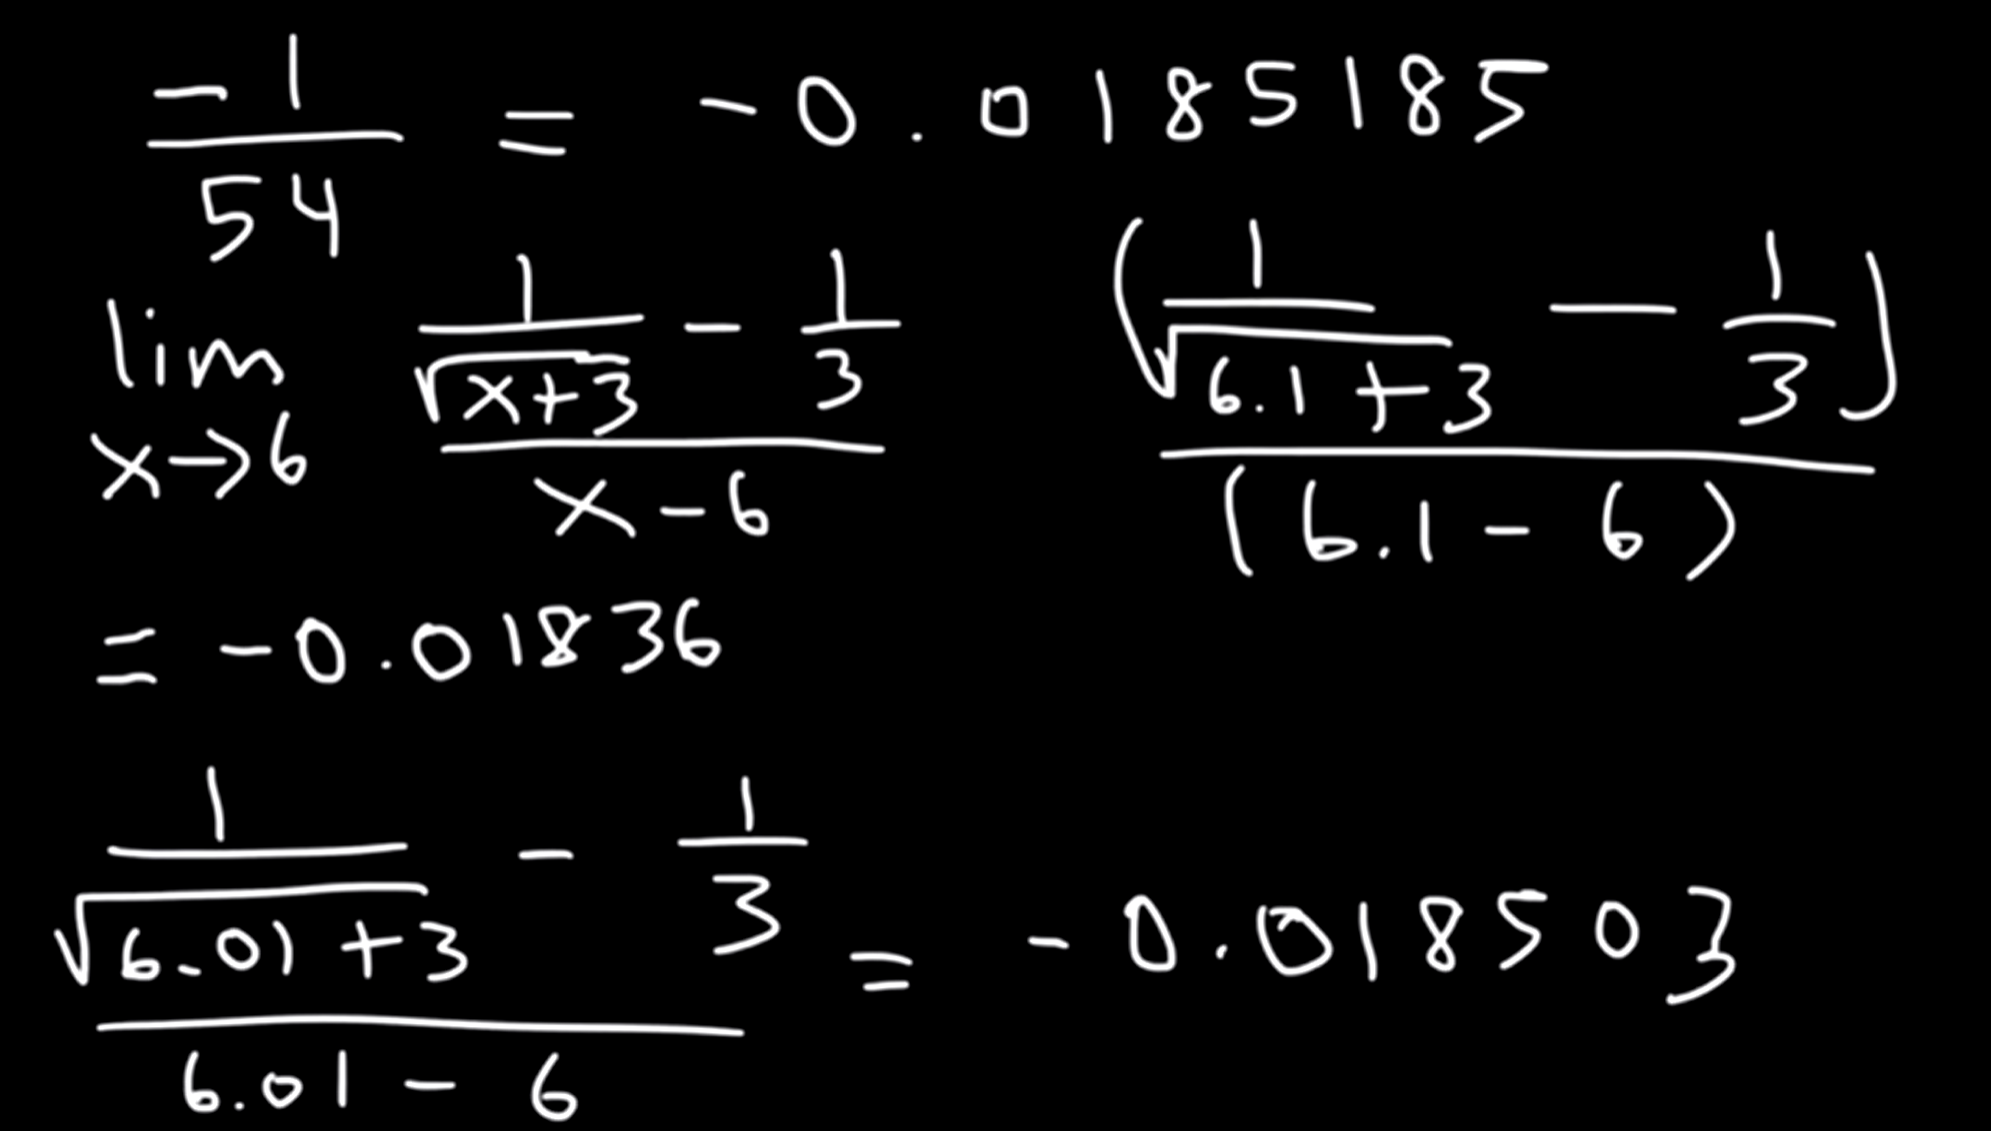 -1/54 = -0.0185185
lim x→6 (1/√(x+3) - 1/3)/(x-6)   (1/√(6.1+3) - 1/3)/(6.1-6)
= -0.01836
(1/√(6.01+3) - 1/3)/(6.01-6) = -0.018503